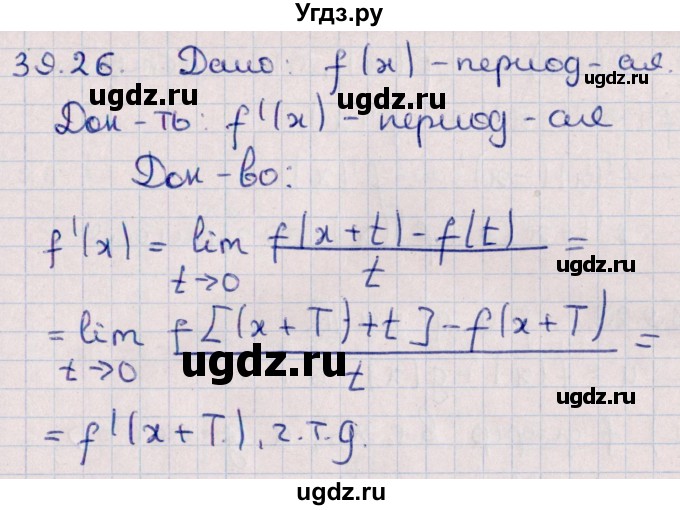 Угдз.ру
39.26. Дано: f(x) – период-ая.
ugdz.ru ugdz.ru
Док-ть: f'(x) – период-ая
ugdz.ru
Док-во:
f'(x) = lim t→0 f(x+t)-f(t) / t =
ugdz.ru ugdz.ru
= lim t→0 f[(x+T)+t]-f(x+T) / t =
ugdz.ru ugdz.ru
= f'(x+T), ч.т.д.
ugdz.ru
ugdz.ru